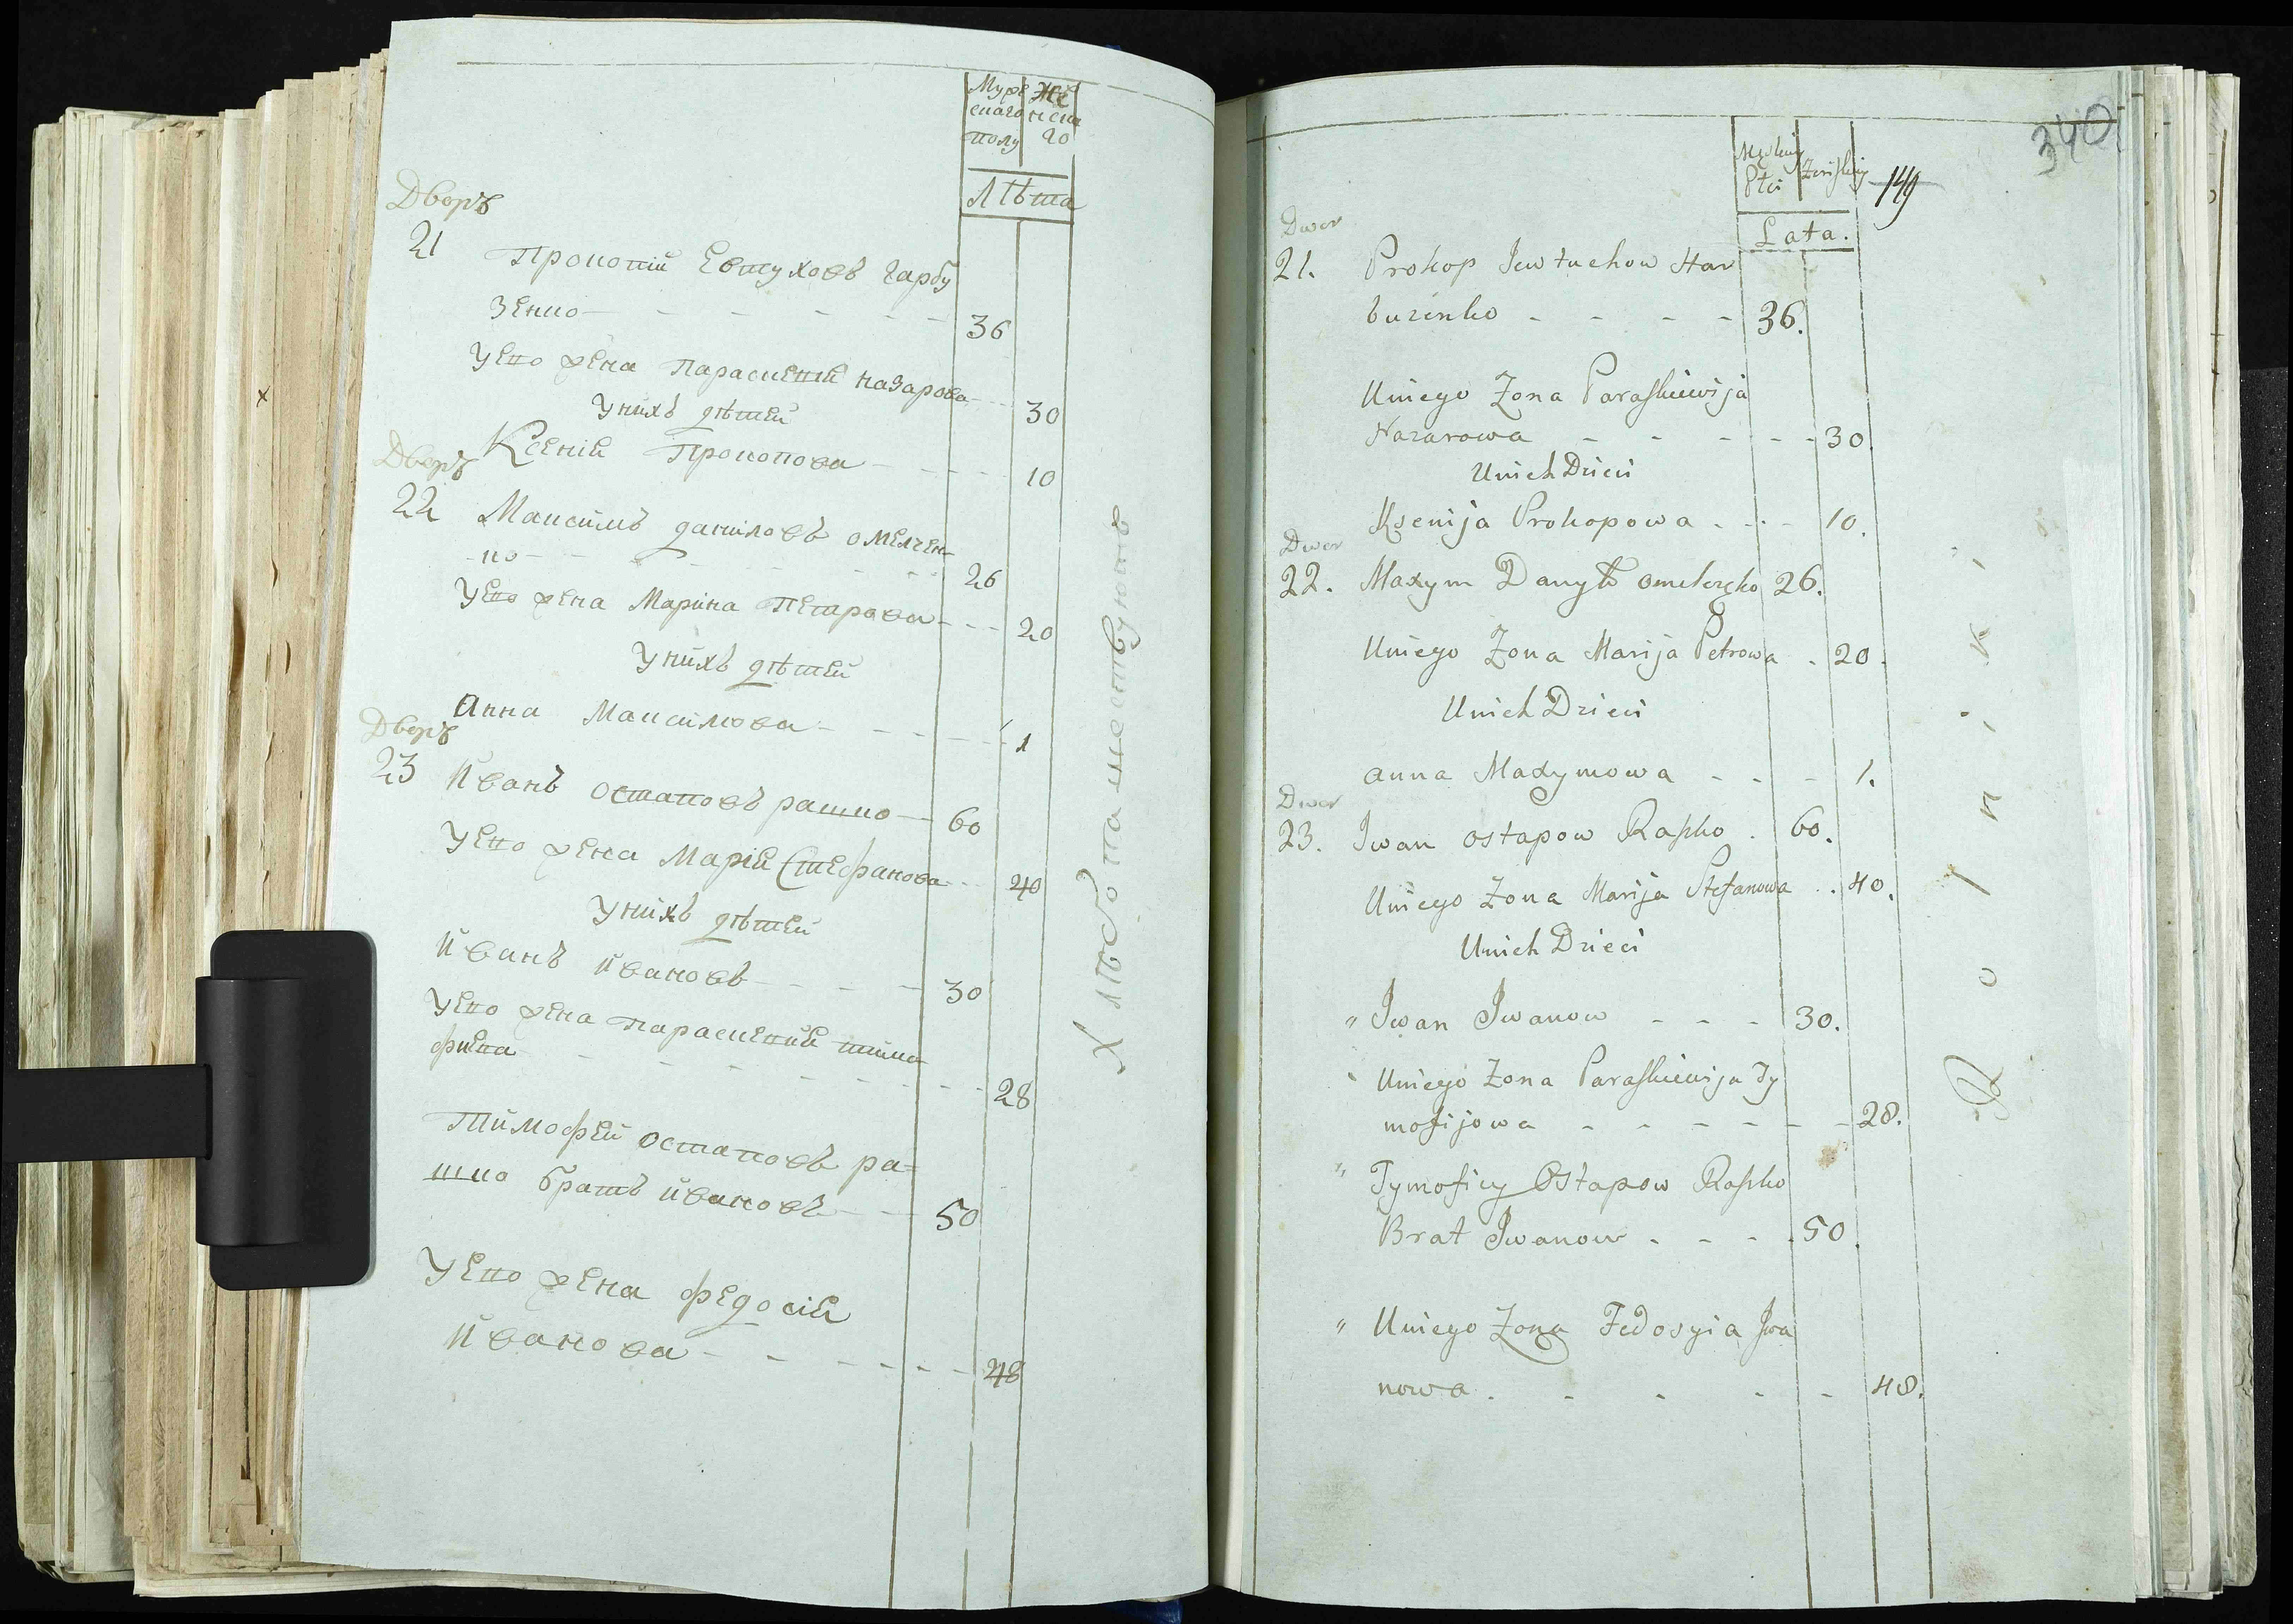 Мужескаго полу
Женскаго
Лѣта
Дворъ
21 Прокопій Евтуховъ Гарбу
зенко - - - - - - 36
Уего жена Параскевія Назарова - - - 30
Унихъ дѣтей
Ксенія Прокопова - - - - 10
Дворъ
22 Максимъ даниловъ омелчен-
-ко - - - - - - 26
Уего жена Марина Петрова - - - 20
Унихъ дѣтей
Анна Максимова - - - - - - 1
Дворъ
23 Иванъ остаповъ рашко - 60
Уего жена Марія Стефанова - - - 40
Унихъ дѣтей
Иванъ Ивановъ - - - - - 30
Уего жена параскевия тимо
фиева - - - - - - - - 28
Тимофей остаповъ ра=
шко братъ ивановъ - - - 50
Уего жена федосія
Иванова - - - - - - - 48
Хлѣбопашествуютъ
340
149
Męskiej Płci
Żeńskiej
Lata.
Dwor
21. Prokop Jewtuchow Har
buzenko - - - - 36.
Uniego Zona Paraskiewija
Nazarowa - - - - - 30.
Unich Dzieci
Ksenija Prokopowa - - - 10.
Dwor
22. Maxym Danył Omelczęko 26.
Uniego Zona Marija Petrowa . 20.
Unich Dzieci
Anna Maxymowa - - - 1.
Dwor
23. Iwan Ostapow Raszko . 60.
Uniego Zona Marija Stefanowa . . 40.
Unich Dzieci
" Iwan Iwanow - - - 30.
" Uniego Zona Paraskiewija Ty
mofijowa - - - - - - - 28.
" Tymofiey Ostapow Raszko
Brat Iwanow - - - - 50.
" Uniego Zona Fedosyia Iwa
nowa . - - - - 48.
Rolniki